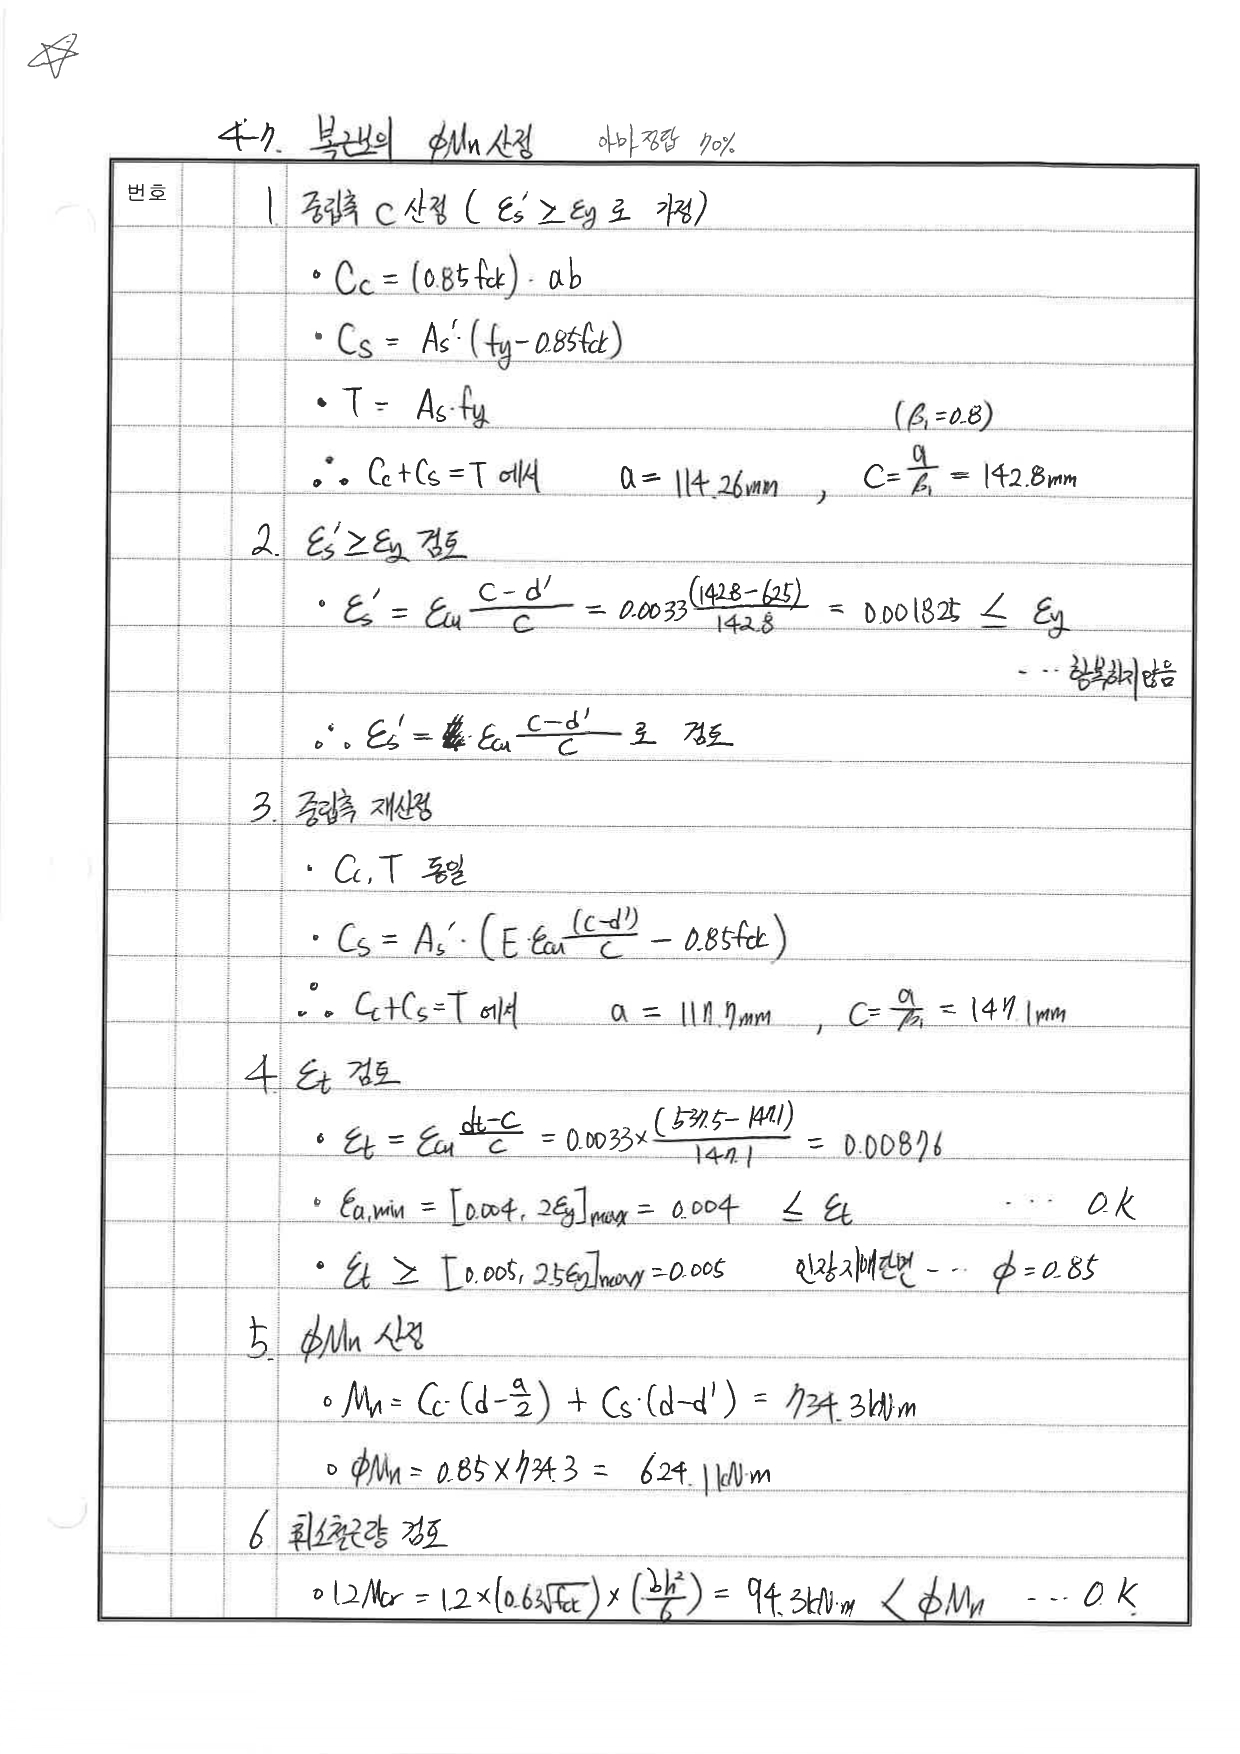 4-7. 복근보의 ϕMn 산정 아마 정답 70%
번호
1 중립축 C 산정 ( εs' ≥ εy 로 가정)
• Cc = (0.85fck) · ab
• Cs = As'·(fy-0.85fck)
• T = As·fy (β₁=0.8)
∴ Cc+Cs=T 에서 a = 114.26mm , C = a/β₁ = 142.8mm
2. εs' ≥ εy 검토
• εs' = εcu (C-d')/C = 0.0033 (142.8-62.5)/142.8 = 0.001825 ≤ εy
--- 항복하지않음
∴ εs' = εcu (C-d')/C 로 검토
3. 중립축 재산정
• Cc, T 동일
• Cs = As'·(E·εcu (C-d')/C - 0.85fck)
∴ Cc+Cs=T 에서 a = 117.7mm , C = a/β₁ = 147.1mm
4 εt 검토
• εt = εcu (dt-C)/C = 0.0033 × (537.5-147.1)/147.1 = 0.00876
• εa,min = [0.004, 2εy]max = 0.004 ≤ εt --- O.K
• εt ≥ [0.005, 2.5εy]max = 0.005 인장지배단면 --- ϕ = 0.85
5. ϕMn 산정
• Mn = Cc·(d-a/2) + Cs·(d-d') = 734.3kN·m
• ϕMn = 0.85×734.3 = 624.1kN·m
6 최소철근량 검토
• 1.2Mcr = 1.2×(0.63√fck)×(bh²/6) = 94.3kN·m < ϕMn --- O.K.